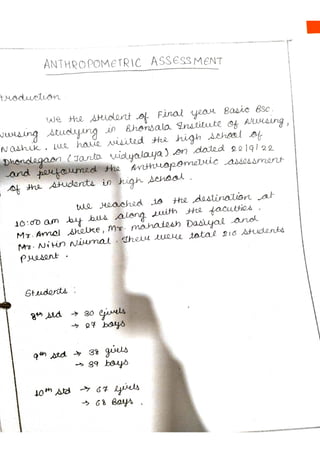 ANTHROPOMETRIC ASSESSMENT
troduction
We the student of Final year Basic BSc.
Nursing studying in Bhonsala Institute of Nursing,
Nashik. We have visited the high school of
Dhondegaon (Janta Vidyalaya) on dated 22/9/22
and performed the Anthropometric assessment
of the students in high school.
We reached to the destination at
10:00 am by bus along with the faculties.
Mr. Amol Shelke, Mr. Mahatesh Dashyal and
Mr. Nitin Nirmal. There were total 210 students
present.
Students :
8th std → 30 Girls
→ 27 boys
9th std → 38 girls
→ 39 boys
10th std → 67 Girls
→ 68 Boys.